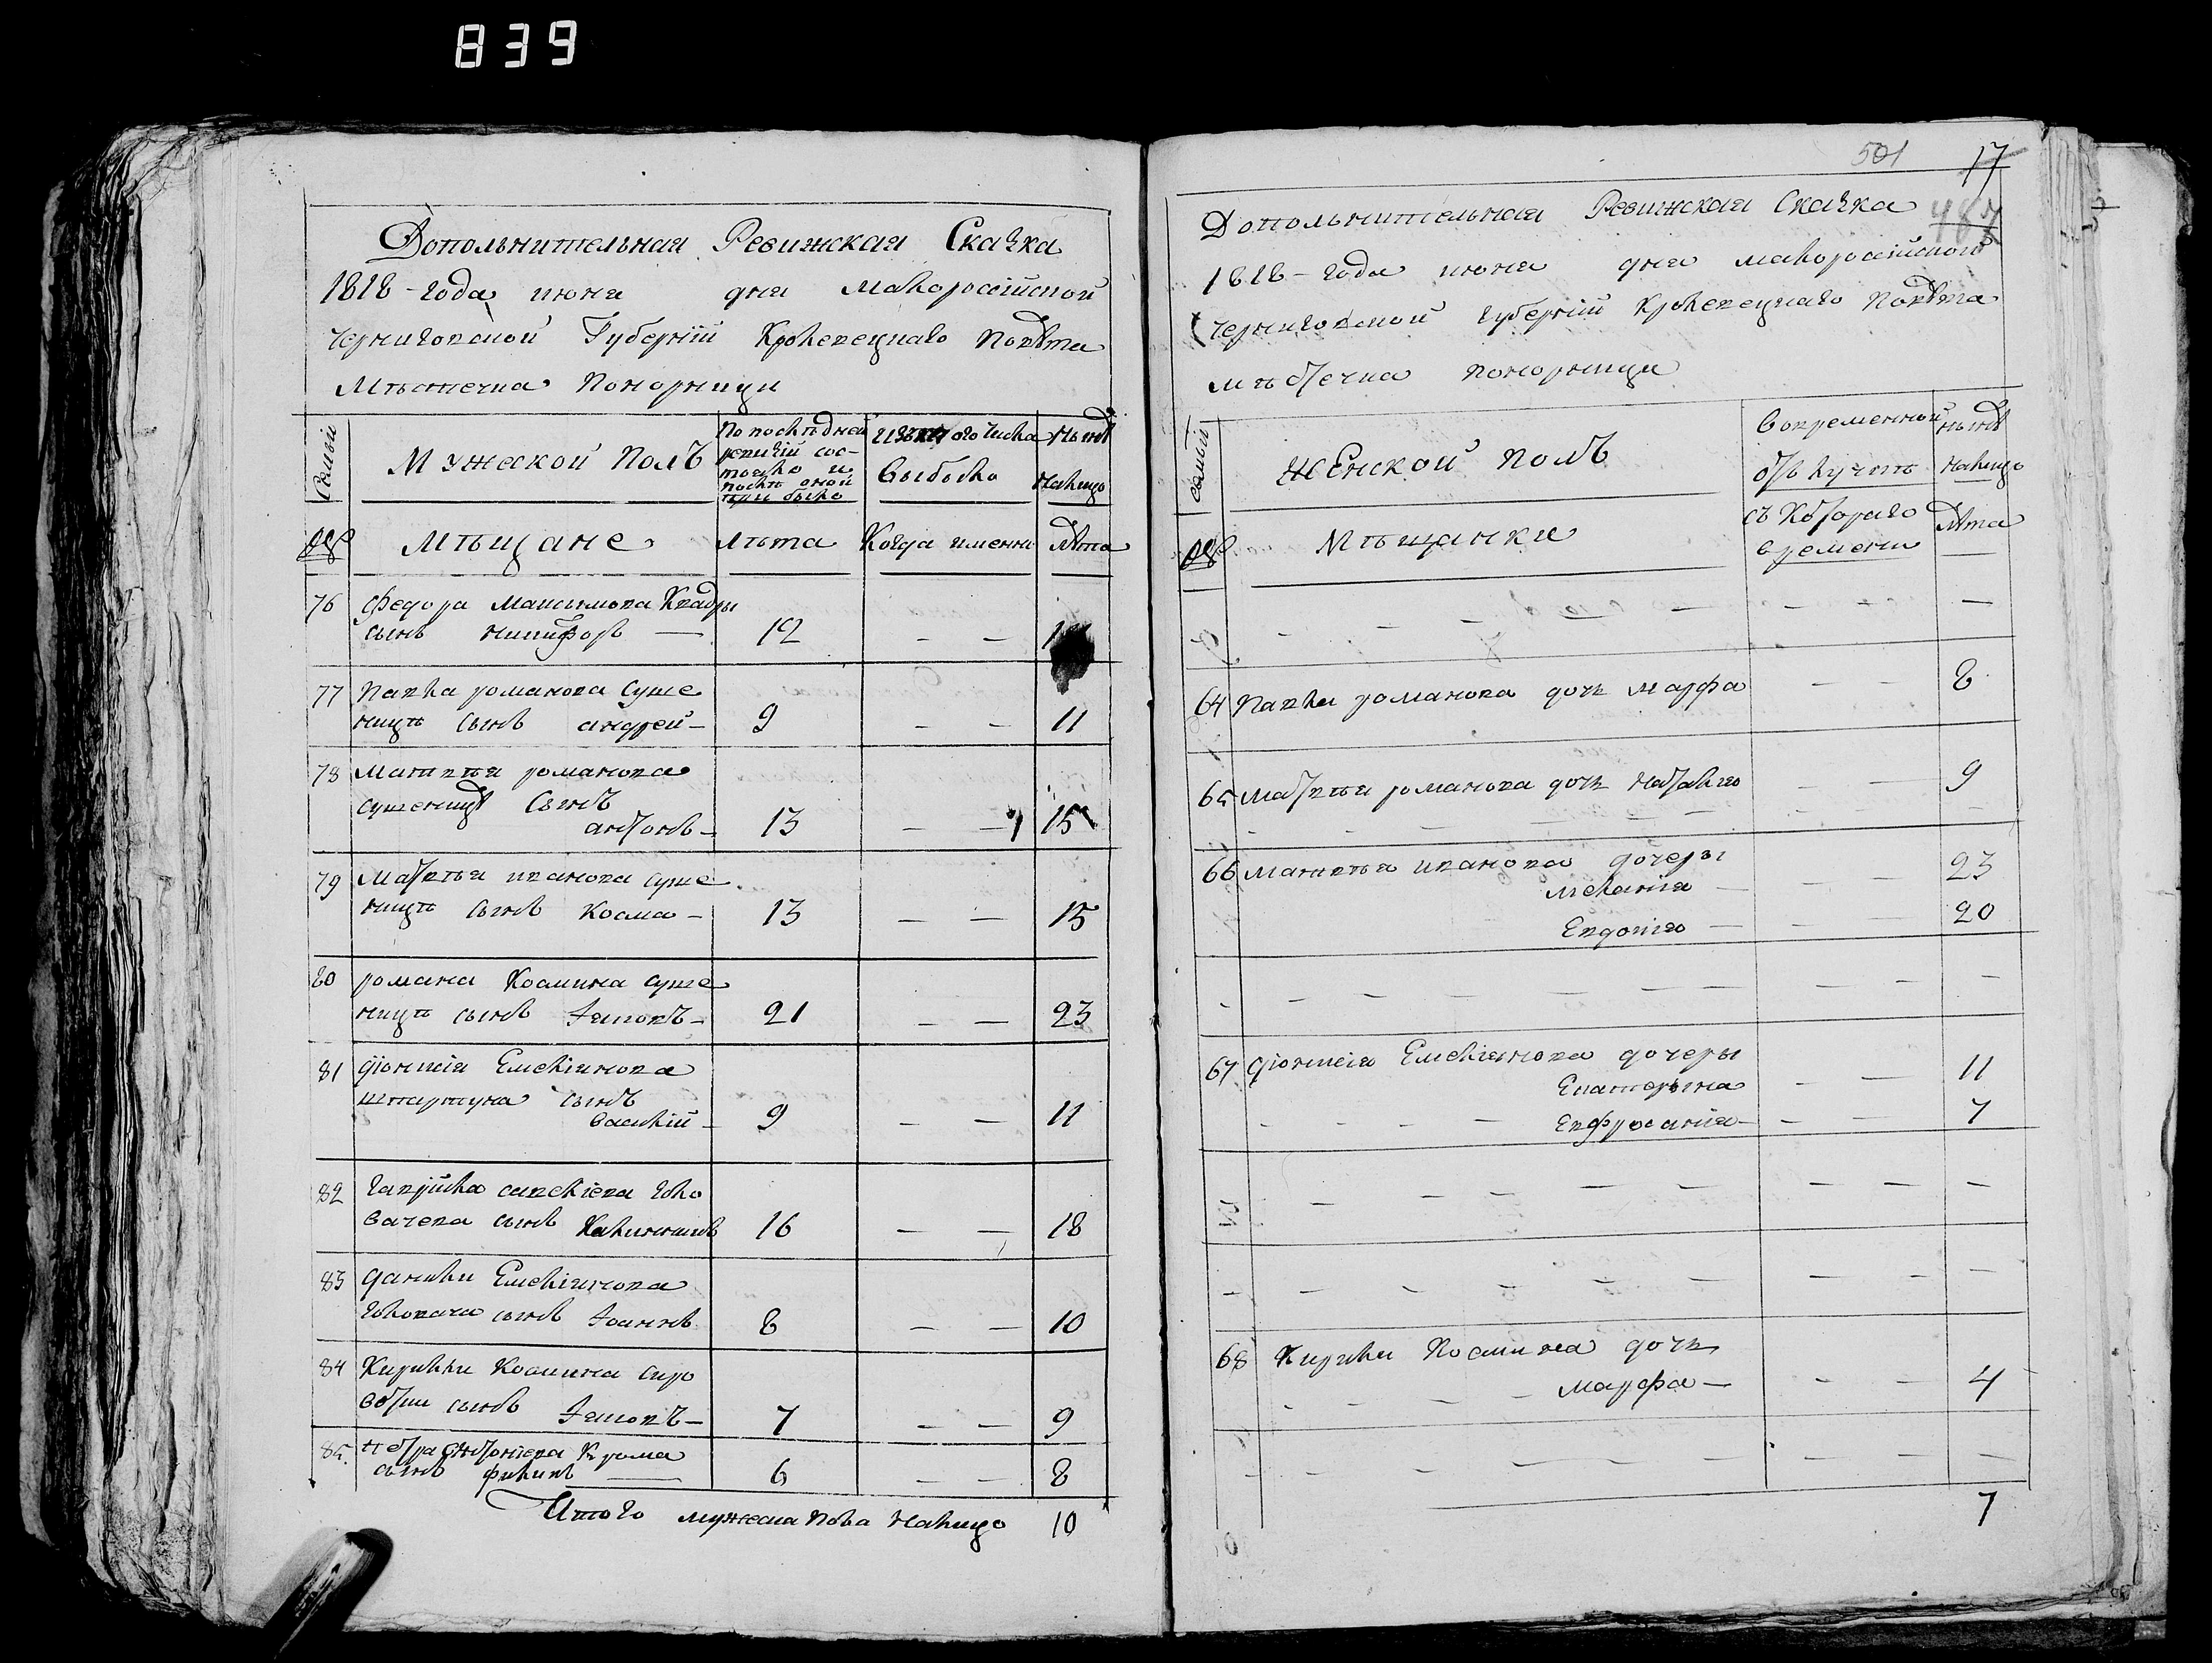 839
Допольнительная Ревижская Сказка
1818 - года июня дня малороссійской
черниговской Губерніи Кролевецкаго повѣта
Мѣстечка Понорници
Семьи
Мужеской Полъ
По послѣдней
ревизіи сос-
тояло и
послѣ оной
при было
Изъ того числа
выбыло
Нынѣ
Налицо
№
Мѣщане
лѣта
Когда именно
лѣта
76 Федора Максимова Квадры
сынъ никифоръ — 12 — —
77 Павла романова Суше
ницѣ сынъ андрей — 9 — — 11
78 Матвѣя романова
сушеницѣ сынъ
антонъ — 13 — — 15
79 Матвѣя иванова суше
ницѣ сынъ козма — 13 — — 15
80 романа Козмина суше
ницѣ сынъ Іяковъ — 21 — — 23
81 діонисія Емеліянова
шпартуна сынъ
василій — 9 — — 11
82 гаврійла савеліева голо
вачева сынъ Калинникъ 16 — — 18
83 данилы Емеліянова
головача сынъ Іоаннъ 8 — — 10
84 Кирилы Козмина сиро
вотки сынъ Іяковъ — 7 — — 9
85. петра
сынъ филипъ — 6 — — 8
Итого мужеска пола налицо 10
501 17
487
Допольнительная Ревижская Сказка
1818 - года июня дня малороссійской
черниговской губерніи кролевецкаго повѣта
мѣстечка понорници
семьи
Женской полъ
Вовременной
отлучкѣ
нынѣ
налицо
№
Мѣщанки
съ Котораго
времени
лѣта
— — — — — —
64 Павла романова дочь марфа — — 8
65 Матвѣя романова дочь наталия — — 9
66 Матвѣя иванова дочеры
меланія — — — 23
Евдокия — — — 20
— — — — — —
67 діонисія Емеліянова дочеры
Екатерына — — 11
Евфросинія — — — 7
— — — — — —
— — — — — —
68 Кирилы Козмина дочь
Марфа — — — 4
— — — — — —
7